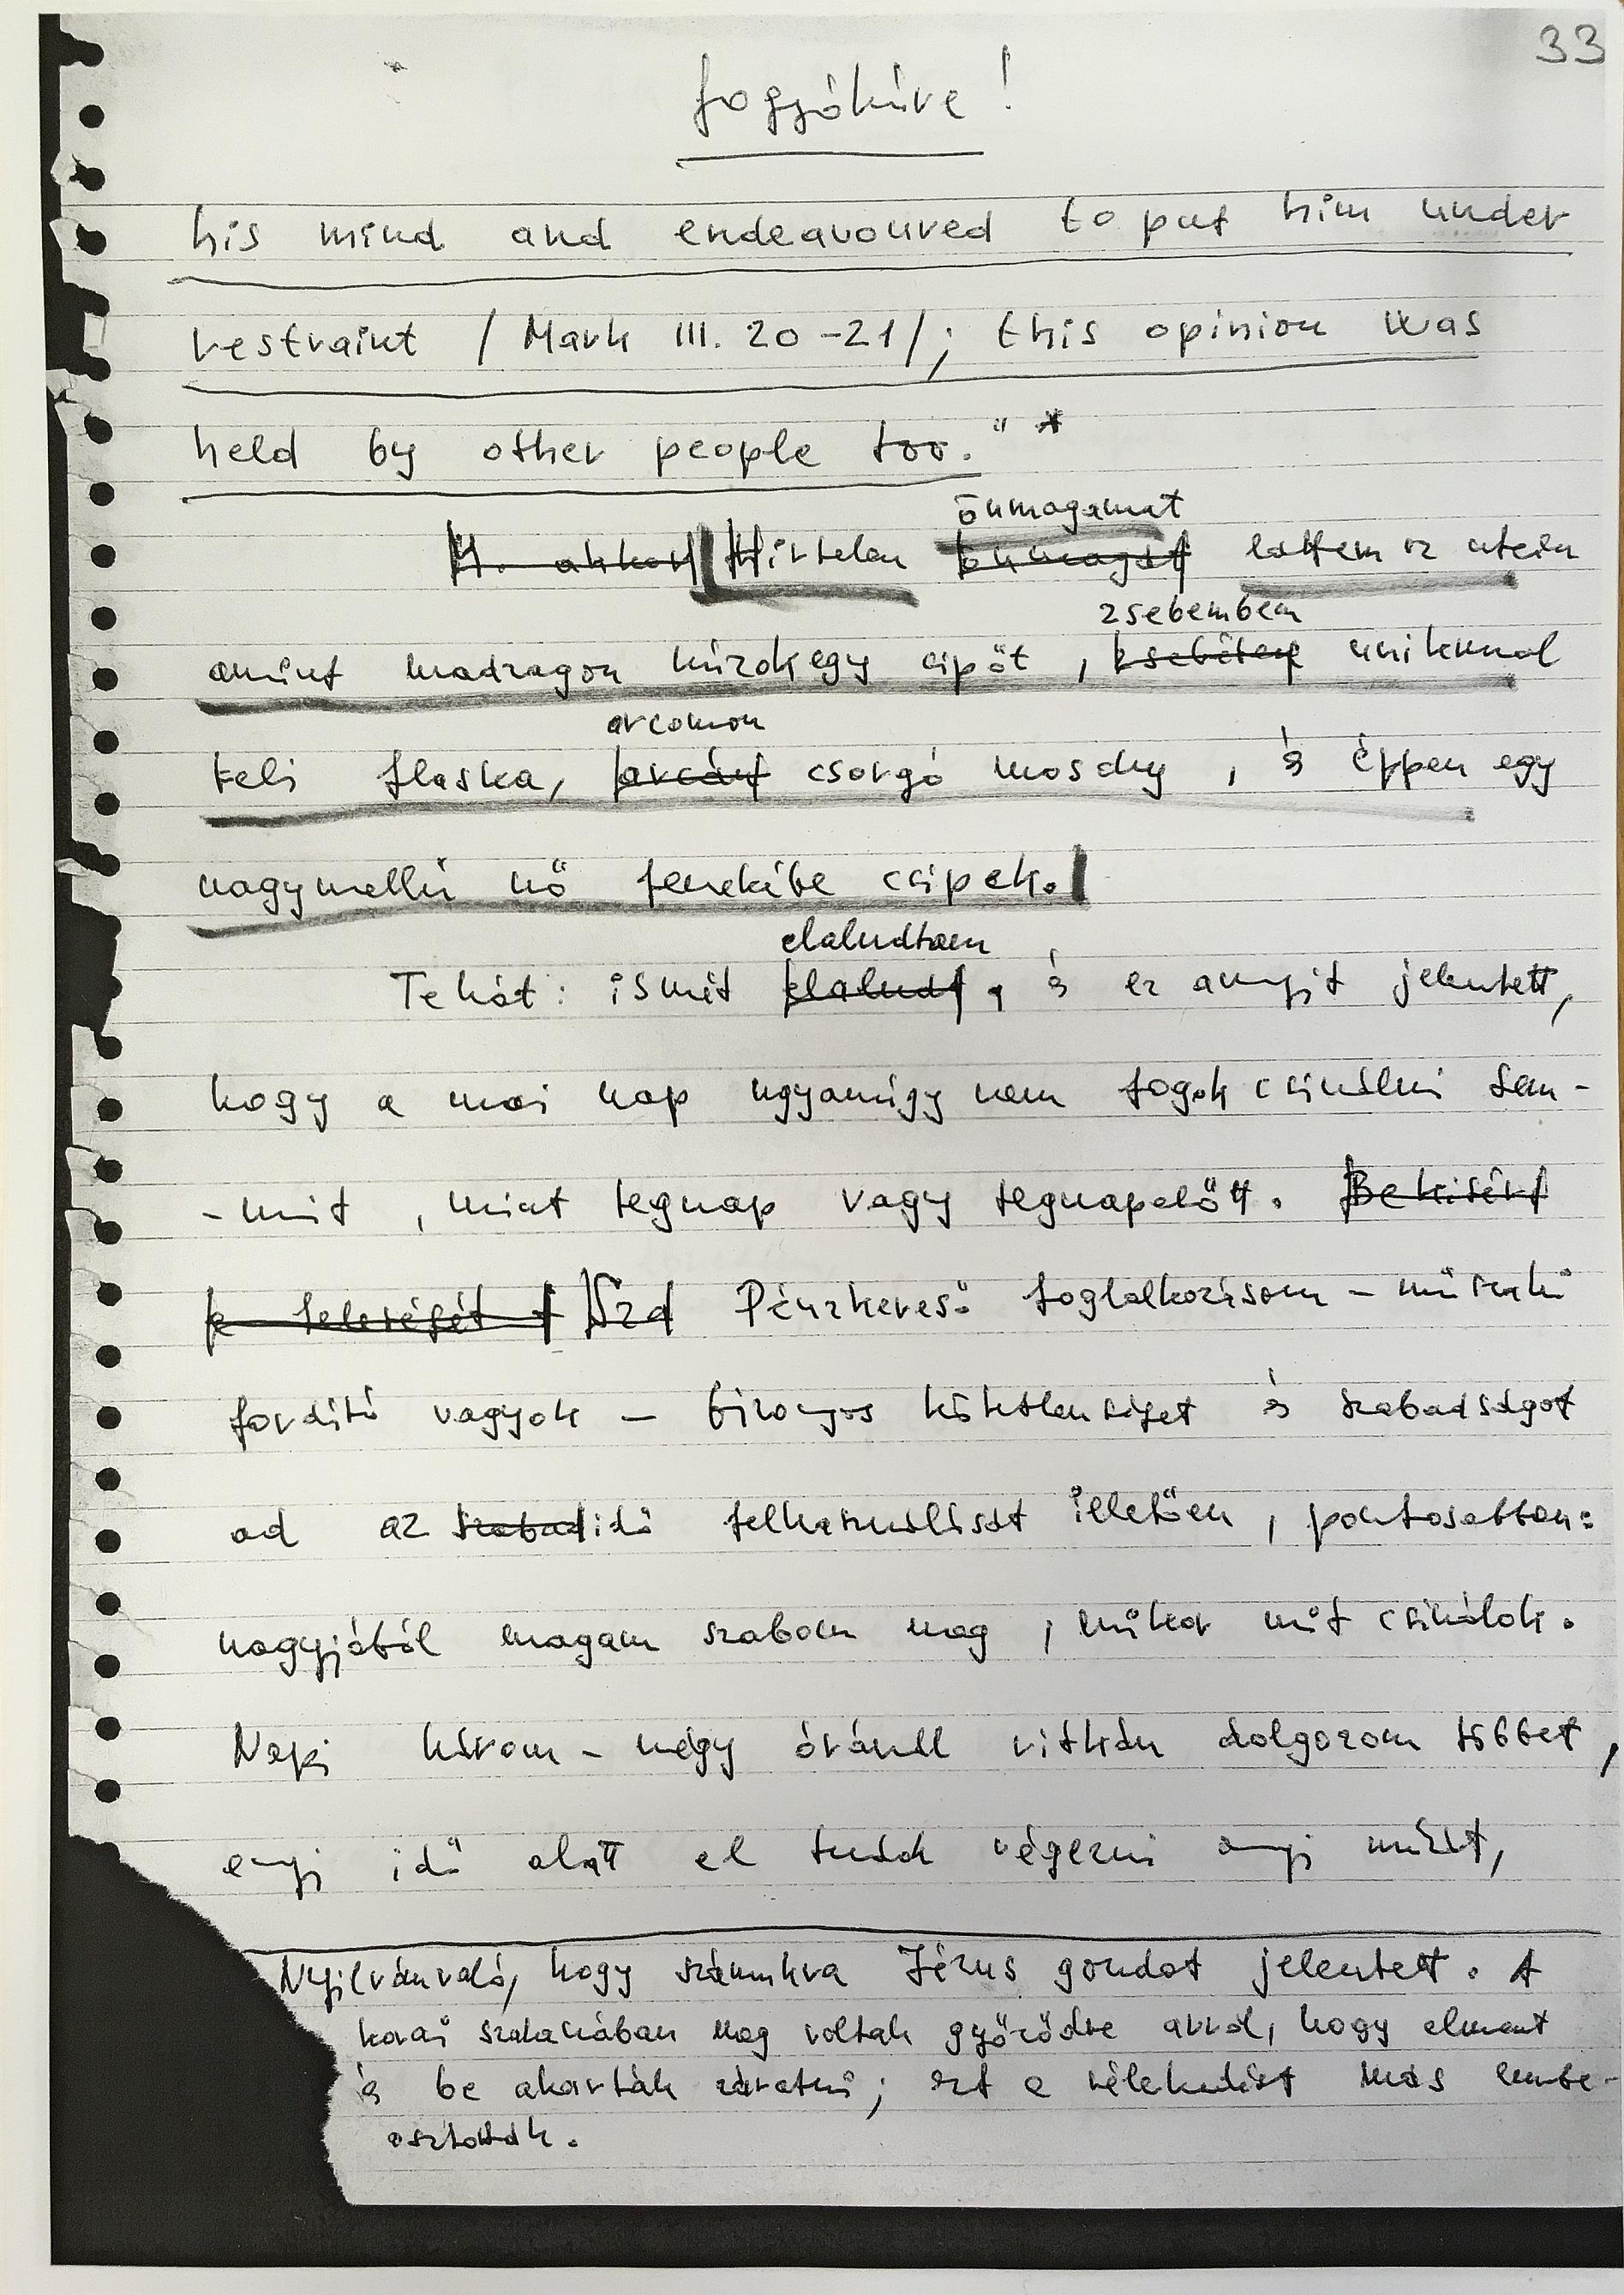 33
fogyókúra!
his mind and endeavoured to put him under
restraint / Mark III. 20-21/; this opinion was
held by other people too." *
önmagamat
H. akkor Hirtelen önmagát láttam az utcán
zsebemben
amint madzagon húzok egy cipőt, zsebében
arcomon
teli flaska, arcán csorgó mosoly, és éppen egy
nagymellű nő fenekébe csipek.
elaludtam
Tehát: ismét elaludt, és ez annyit jelentett,
hogy a mai nap ugyanúgy nem fogok csinálni sem-
-mit, mint tegnap vagy tegnapelőtt. Bekísért
a feleségét Szó Pénzkereső foglalkozásom - műszaki
fordító vagyok - bizonyos kötetlenséget és szabadságot
ad az szabadidő felhasználását illetően, pontosabban:
nagyjából magam szabom meg, mikor mit csinálok.
Napi három-négy óránál ritkán dolgozom többet,
ennyi idő alatt el tudok végezni annyi munkát,
Nyilvánvaló, hogy számukra Jézus gondot jelentett. A
korai szakaszában meg voltak győződve arról, hogy elment
és be akarták záratni; ezt a vélekedést más embe-
osztották.